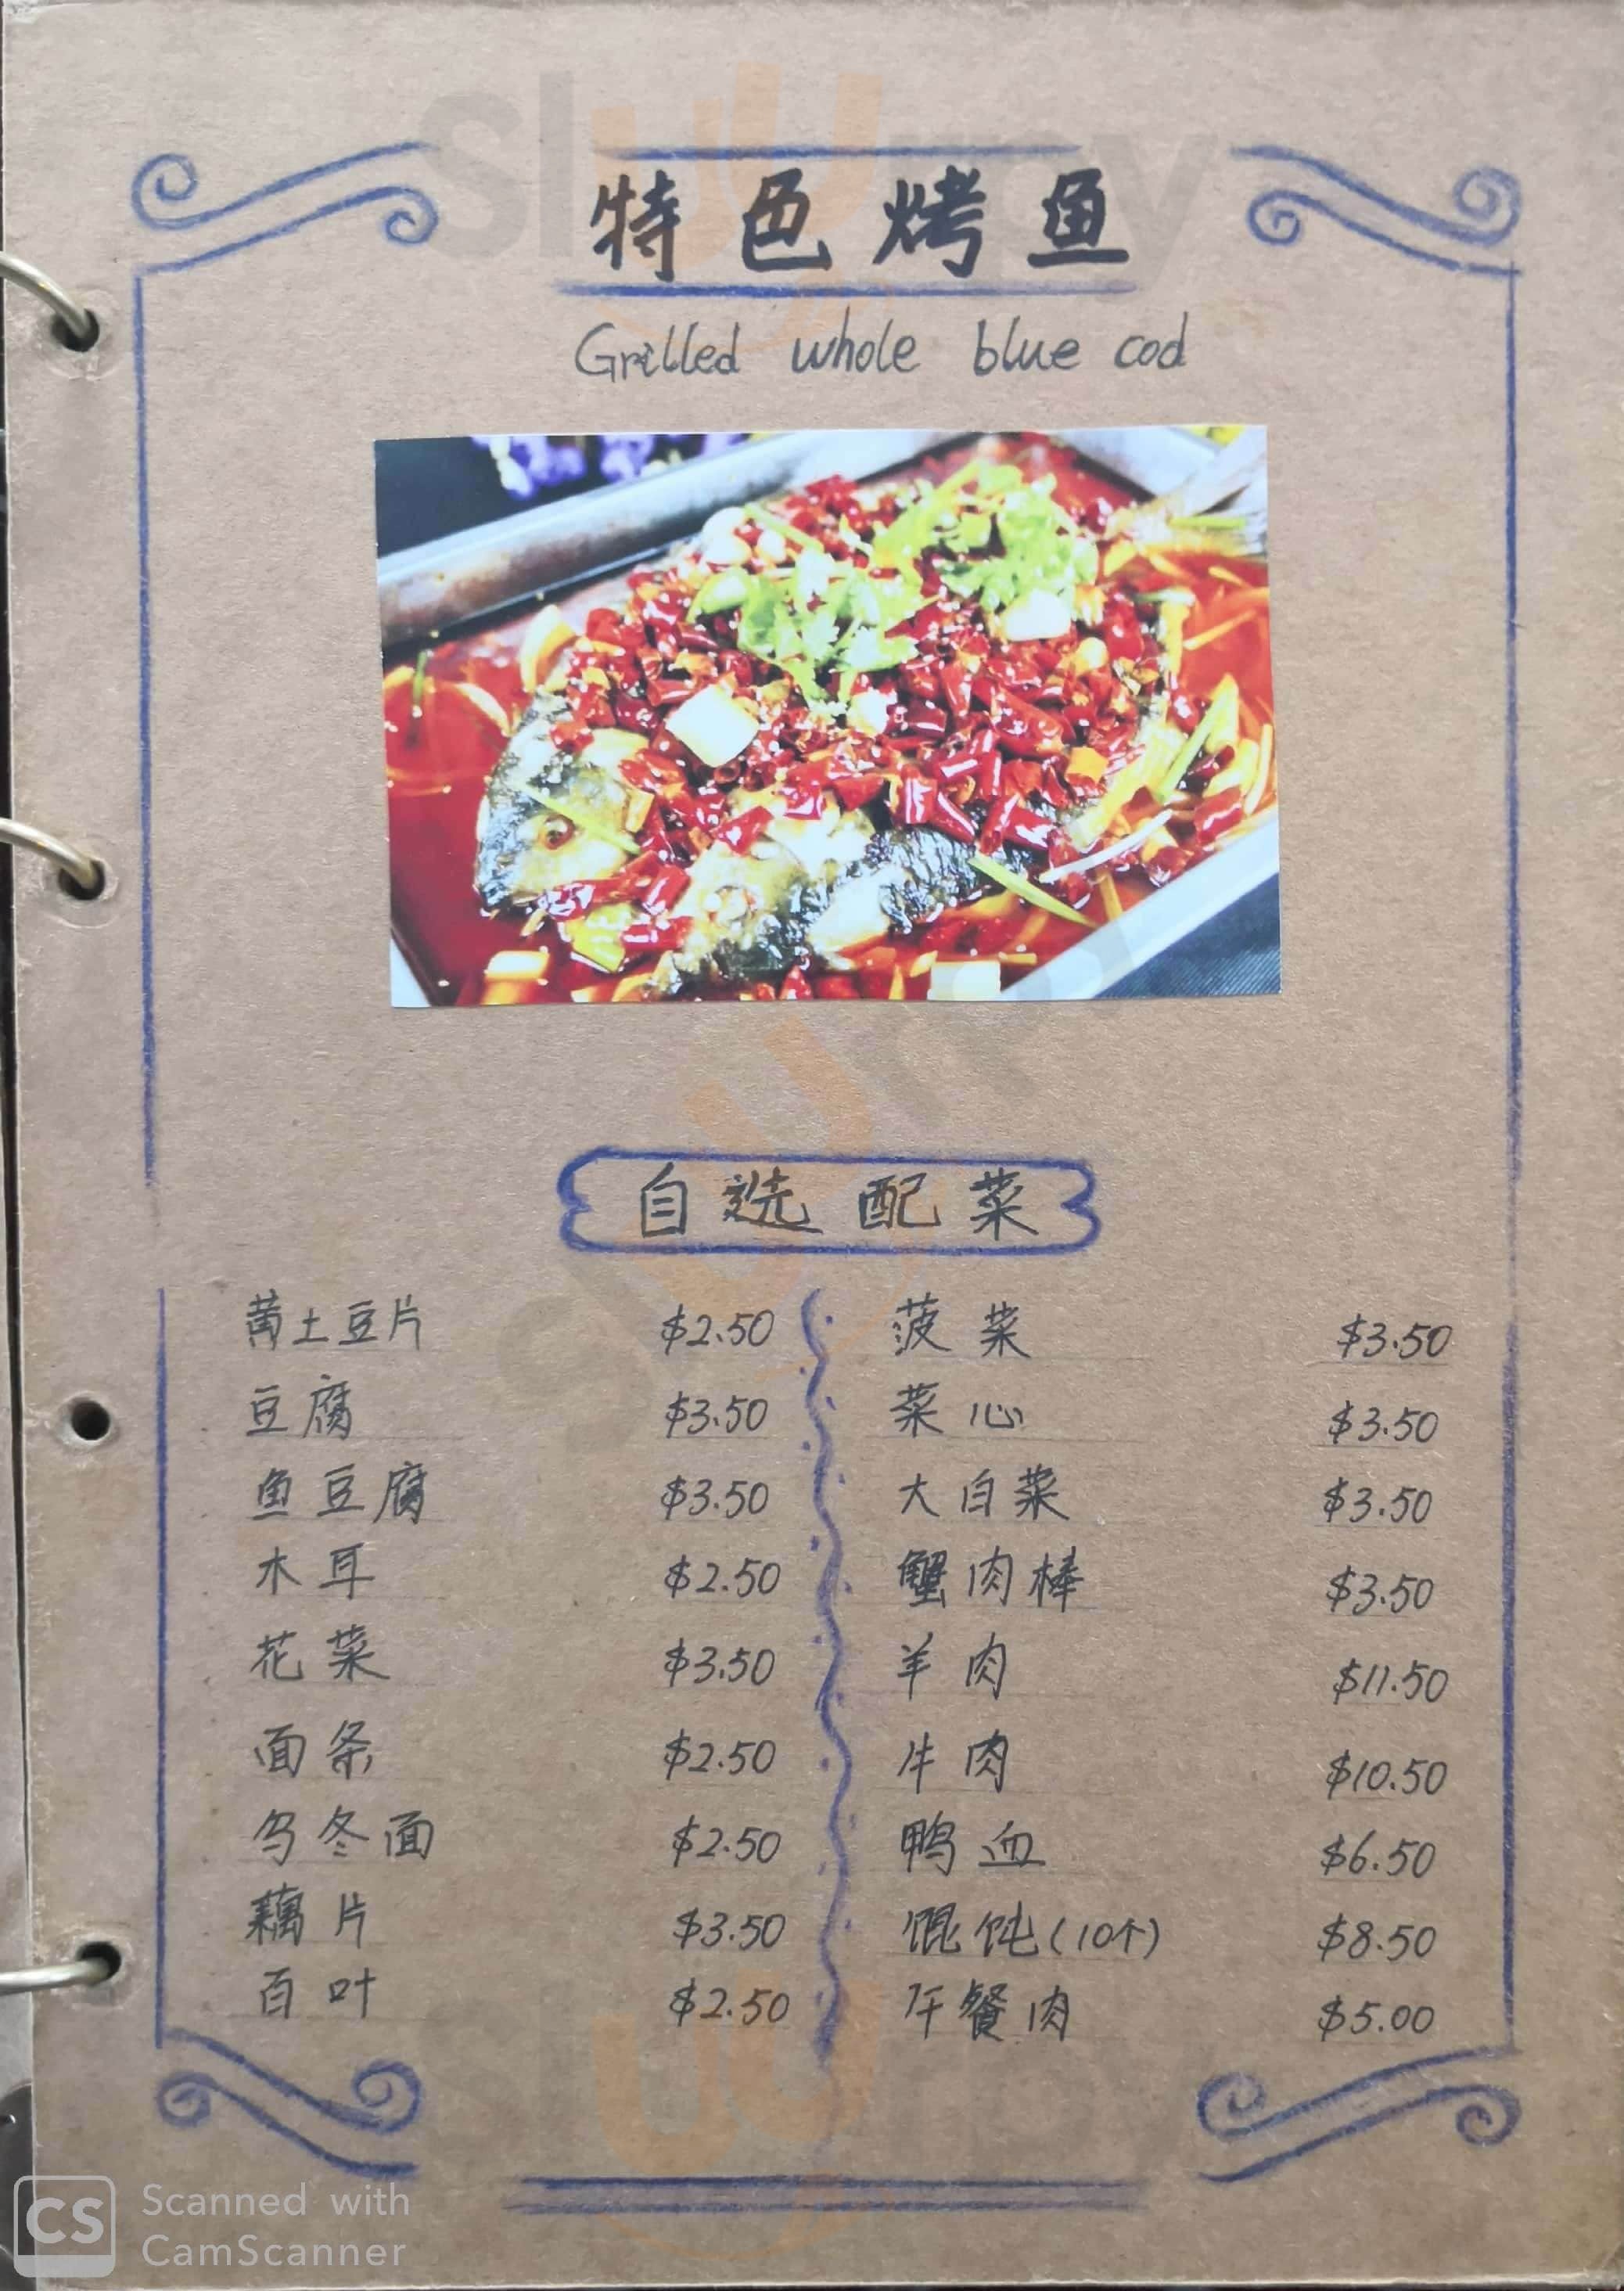 特色烤鱼
Grilled whole blue cod
自选配菜
黄土豆片 $2.50
豆腐 $3.50
鱼豆腐 $3.50
木耳 $2.50
花菜 $3.50
面条 $2.50
乌冬面 $2.50
藕片 $3.50
百叶 $2.50
菠菜 $3.50
菜心 $3.50
大白菜 $3.50
蟹肉棒 $3.50
羊肉 $11.50
牛肉 $10.50
鸭血 $6.50
馄饨(10个) $8.50
午餐肉 $5.00
CS
Scanned with
CamScanner